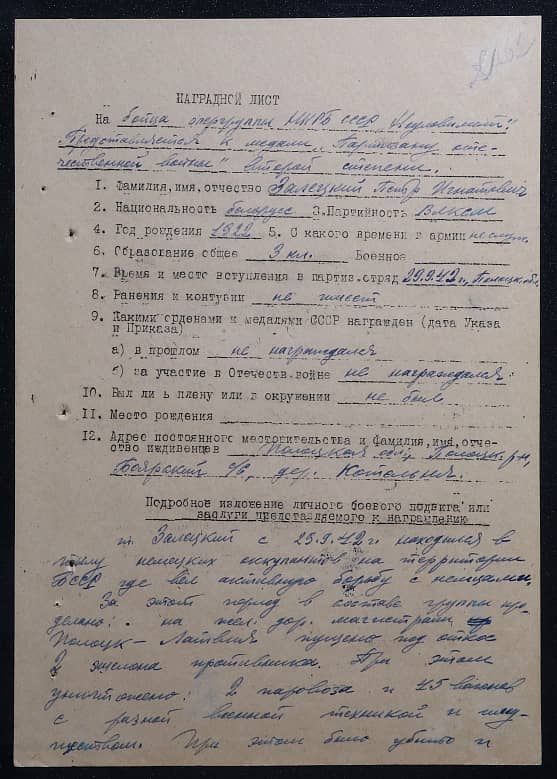 НАГРАДНОЙ ЛИСТ
На бойца опергруппы НКГБ СССР "Неуловимые".
Представляется к медали "Партизану оте-
чественной войны" второй степени.
1. Фамилия, имя, отчество Залецкий Петр Игнатович
2. Национальность белорусс 3. Партийность ВЛКСМ
4. Год рождения 1922 5. С какого времени в армии не служ.
6. Образование общее 3 кл. Военное
7. Время и место вступления в партиз. отряд 29.9.42 г., Полоцк. обл.
8. Ранения и контузии не имеет
9. Какими орденами и медалями СССР награжден (дата Указа
и Приказа)
а) в прошлом не награждался
б) за участие в Отечеств. войне не награждался.
10. Был ли ь плену или в окружении не был
11. Место рождения
12. Адрес постоянного местожительства и фамилия, имя, отче-
ство иждивенцев Полоцкая обл, Полоцк. р-н,
Боярский с/с, дер.
Подробное изложение личного боевого подвига или
заслуги представляемого к награждению
т. Залецкий с 29.9.42 г. находился в
тылу немецких оккупантов на территории
БССР где вел активную борьбу с немцами.
За этот период в составе группы про-
делано: на жел. дор. магистрали
Полоцк - Латвия пущено под откос
2 эшелона противника. При этом
уничтожено: 2 паровоза и 15 вагонов
с разной военной техникой и иму-
ществом. При этом было убито и